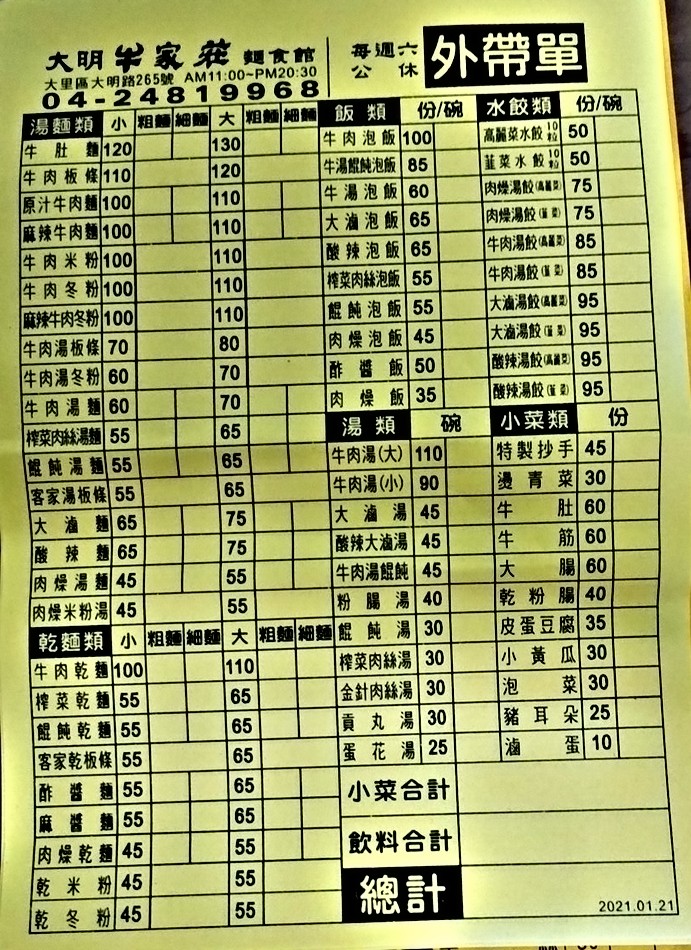 大明牛家莊 麵食館
大里區大明路265號 AM11:00~PM20:30
04-24819968
每週六
公休
外帶單
湯麵類 小 粗麵 細麵 大 粗麵 細麵
牛肚麵 120 130
牛肉板條 110 120
原汁牛肉麵 100 110
麻辣牛肉麵 100 110
牛肉米粉 100 110
牛肉冬粉 100 110
麻辣牛肉冬粉 100 110
牛肉湯板條 70 80
牛肉湯冬粉 60 70
牛肉湯麵 60 70
榨菜肉絲湯麵 55 65
餛飩湯麵 55 65
客家湯板條 55 65
大滷麵 65 75
酸辣麵 65 75
肉燥湯麵 45 55
肉燥米粉湯 45 55
乾麵類 小 粗麵 細麵 大 粗麵 細麵
牛肉乾麵 100 110
榨菜乾麵 55 65
餛飩乾麵 55 65
客家乾板條 55 65
酢醬麵 55 65
麻醬麵 55 65
肉燥乾麵 45 55
乾米粉 45 55
乾冬粉 45 55
飯類 份/碗
牛肉泡飯 100
牛湯餛飩泡飯 85
牛湯泡飯 60
大滷泡飯 65
酸辣泡飯 65
榨菜肉絲泡飯 55
餛飩泡飯 55
肉燥泡飯 45
酢醬飯 50
肉燥飯 35
湯類 碗
牛肉湯(大) 110
牛肉湯(小) 90
大滷湯 45
酸辣大滷湯 45
牛肉湯餛飩 45
粉腸湯 40
餛飩湯 30
榨菜肉絲湯 30
金針肉絲湯 30
貢丸湯 30
蛋花湯 25
水餃類 份/碗
高麗菜水餃10粒 50
韮菜水餃10粒 50
肉燥湯餃(高麗菜) 75
肉燥湯餃(韮菜) 75
牛肉湯餃(高麗菜) 85
牛肉湯餃(韮菜) 85
大滷湯餃(高麗菜) 95
大滷湯餃(韮菜) 95
酸辣湯餃(高麗菜) 95
酸辣湯餃(韮菜) 95
小菜類 份
特製抄手 45
燙青菜 30
牛肚 60
牛筋 60
大腸 60
乾粉腸 40
皮蛋豆腐 35
小黃瓜 30
泡菜 30
豬耳朵 25
滷蛋 10
小菜合計
飲料合計
總計
2021.01.21